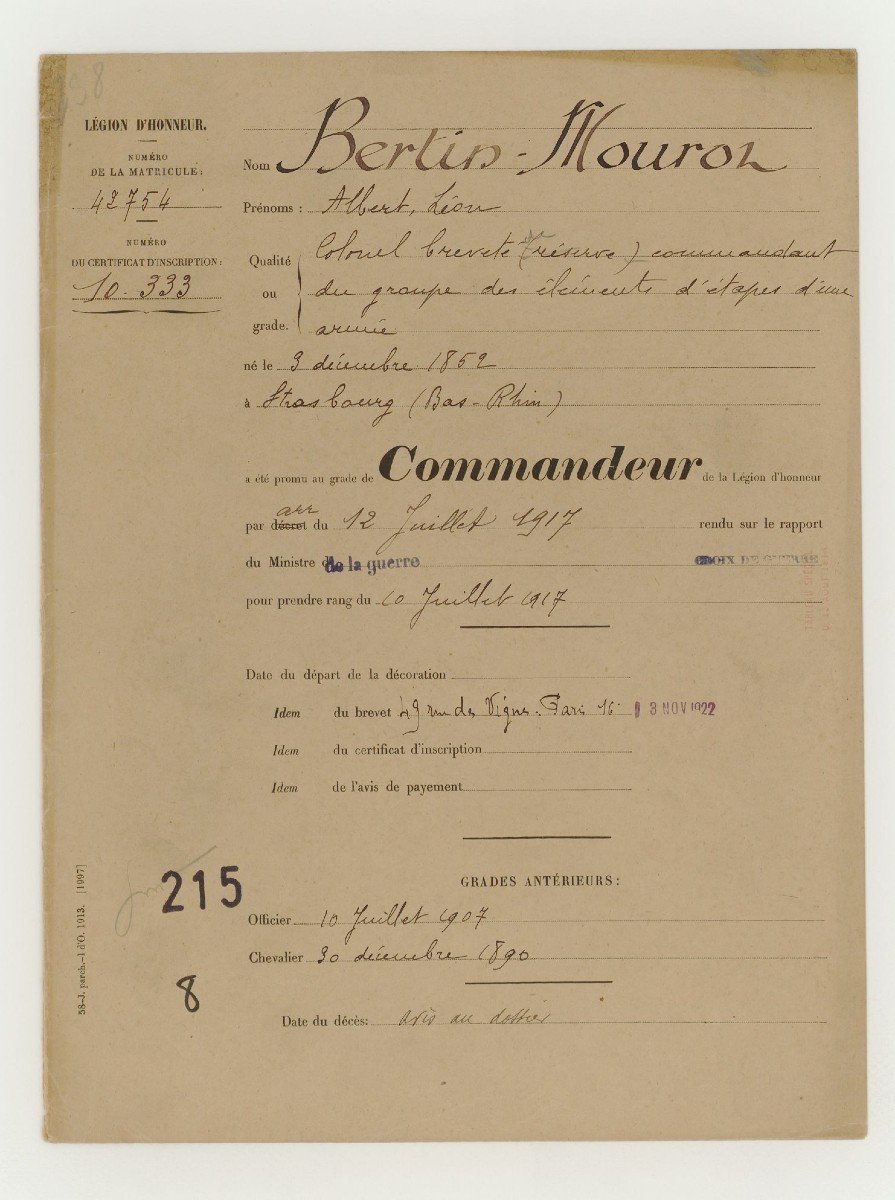 238
LÉGION D'HONNEUR.
NUMÉRO
DE LA MATRICULE:
42754
NUMÉRO
DU CERTIFICAT D'INSCRIPTION:
10.333
Nom Bertin-Mourot
Prénoms: Albert, Léon
Qualité ou grade. Colonel breveté (de réserve) commandant
du groupe des éléments d'étapes d'une
armée
né le 3 décembre 1852
à Strasbourg (Bas-Rhin)
a été promu au grade de Commandeur de la Légion d'honneur
arr
par décret du 12 Juillet 1917 rendu sur le rapport
du Ministre de la guerre CROIX DE GUERRE
pour prendre rang du 10 Juillet 1917
Date du départ de la décoration
Idem du brevet 49 rue des Vignes. Paris 16 3 NOV 1922
Idem du certificat d'inscription
Idem de l'avis de payement
GRADES ANTÉRIEURS:
Officier 10 Juillet 1907
Chevalier 30 décembre 1890
Date du décès: avis au dossier
215
8
58-J. parch.-1 d'O. 1913. [1997]